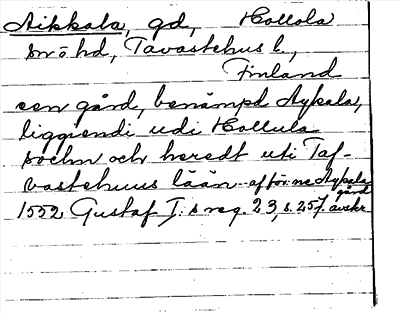 Aikkala, gd, Hollola
sn o hd, Tavastehus l.,
Finland
een gård, benämpd Aykala,
liggiendi udi Hollula
sochn och heredt uti Taf-
vastehuus lään - af för:ne Aykala
gård
1552 Gustaf I:s reg. 23, s. 257. avskr.